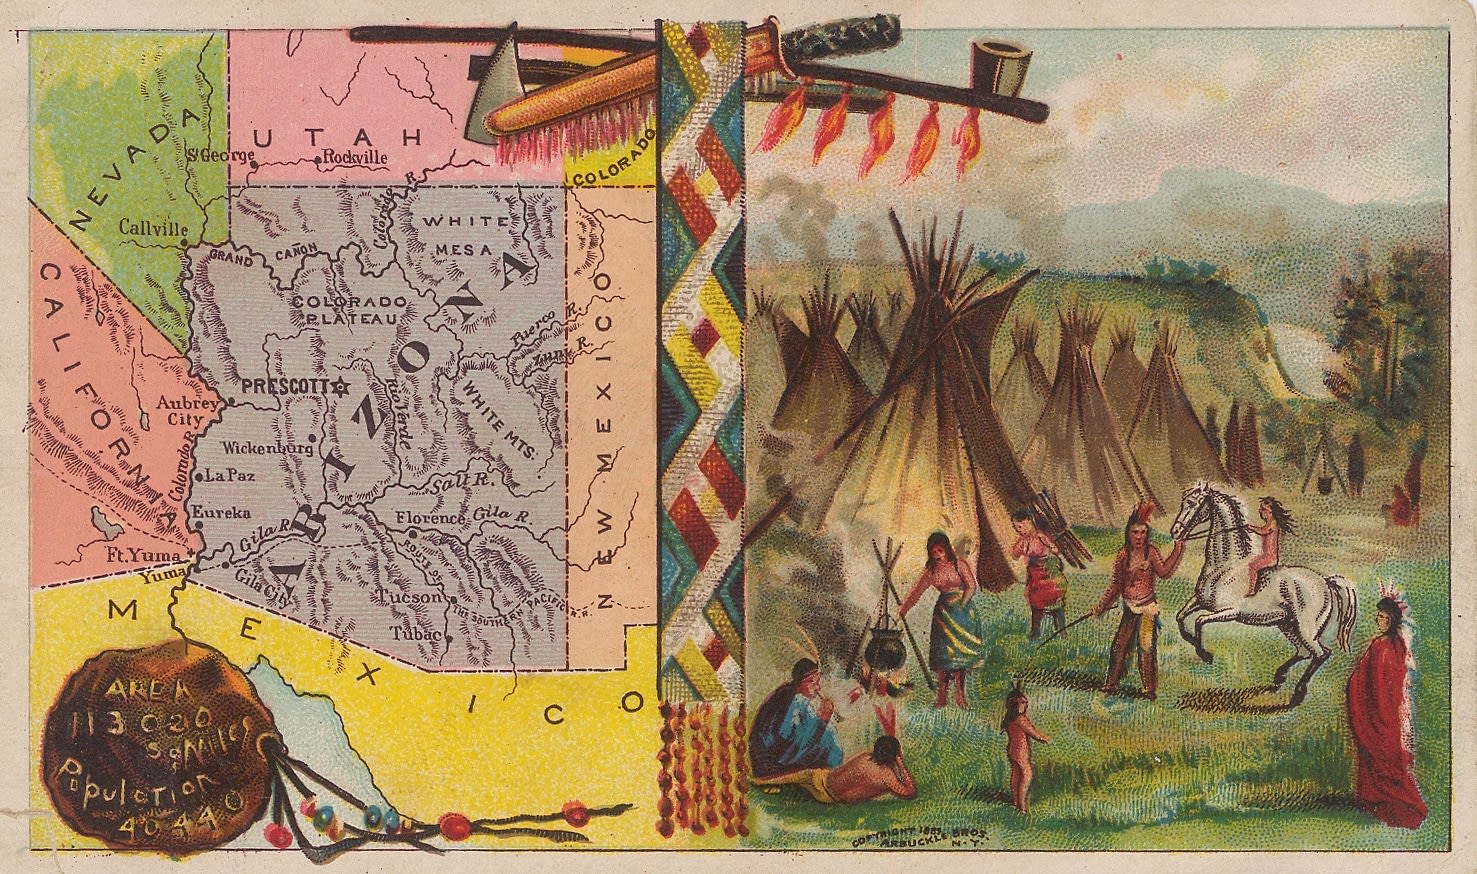 NEVADA
UTAH
St George
Rockville
COLORADO
Colorado R.
WHITE
MESA
Callville
GRAND CAÑON
COLORADO
PLATEAU
CALIFORNIA
ARIZONA
NEW MEXICO
Puerco R.
Zuni R.
PRESCOTT
Rio Verde
WHITE MTS.
Aubrey
City
Wickenburg
Colorado R.
La Paz
Salt R.
Eureka
Gila R.
Florence
Gila R.
Ft. Yuma
Yuma
Gila City
Tucson
SOUTHERN PACIFIC R.R.
Tubac
MEXICO
AREA
113020
Sq Miles
Population
40440
COPYRIGHT 1887 BROS.
ARBUCKLE
N.Y.